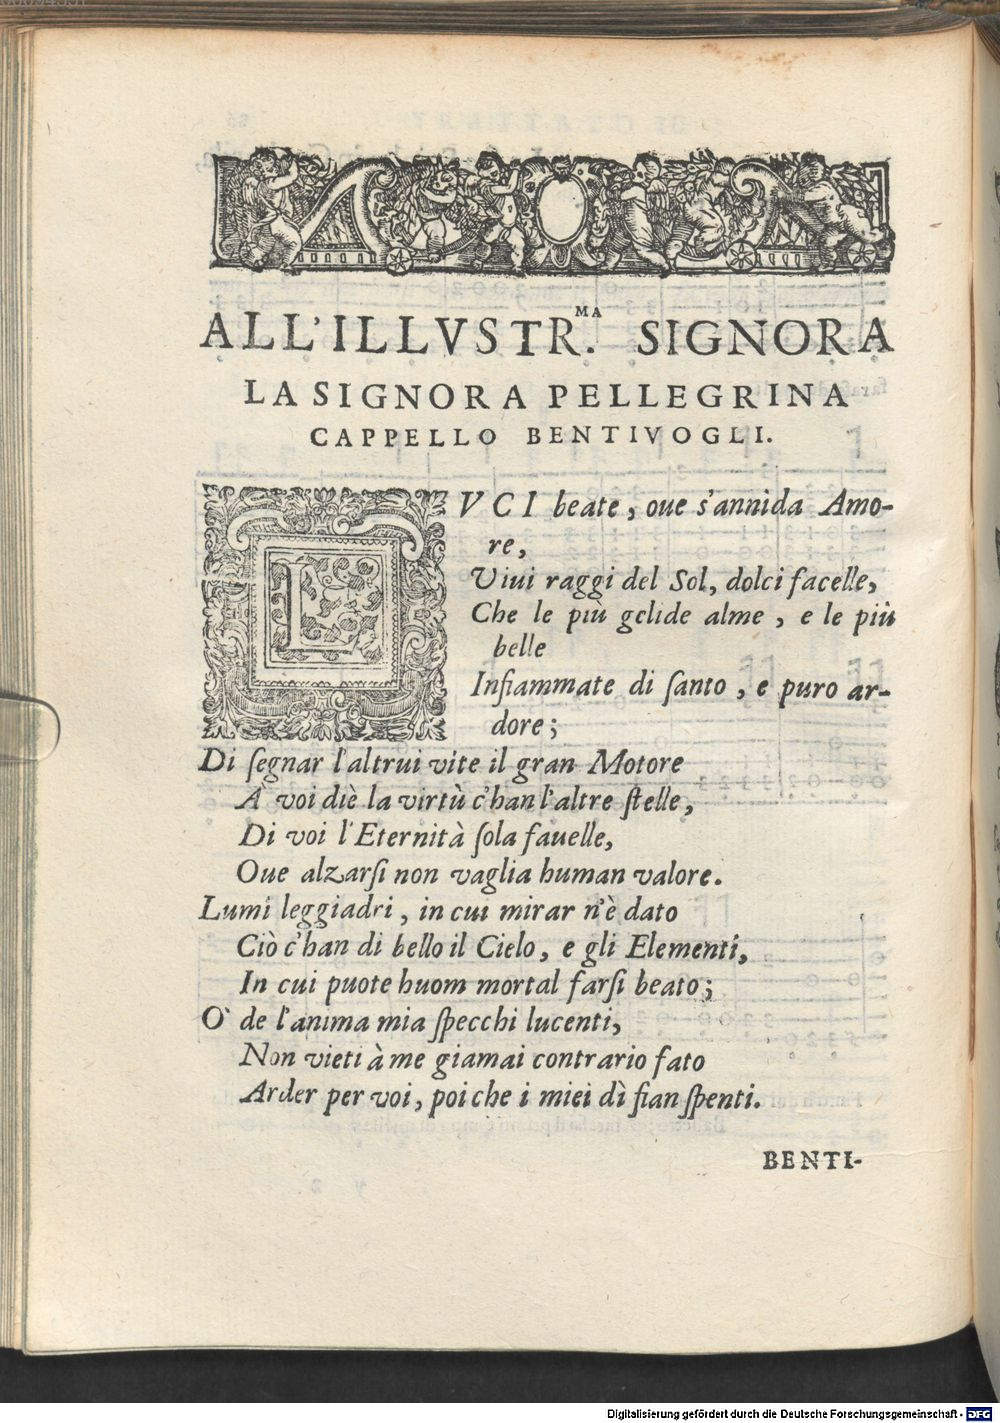 ALL'ILLVSTR.MA SIGNORA
LA SIGNORA PELLEGRINA
CAPPELLO BENTIVOGLI.
LVCI beate, oue s'annida Amo-
re,
Viui raggi del Sol, dolci facelle,
Che le più gelide alme, e le più
belle
Infiammate di ſanto, e puro ar-
dore;
Di ſegnar l'altrui vite il gran Motore
A voi diè la virtù c'han l'altre ſtelle,
Di voi l'Eternità ſola fauelle,
Oue alzarſi non vaglia human valore.
Lumi leggiadri, in cui mirar n'è dato
Ciò c'han di bello il Cielo, e gli Elementi,
In cui puote huom mortal farſi beato;
O' de l'anima mia ſpecchi lucenti,
Non vieti à me giamai contrario fato
Arder per voi, poi che i miei dì fian ſpenti.
BENTI-
Digitalisierung gefördert durch die Deutsche Forschungsgemeinschaft - DFG